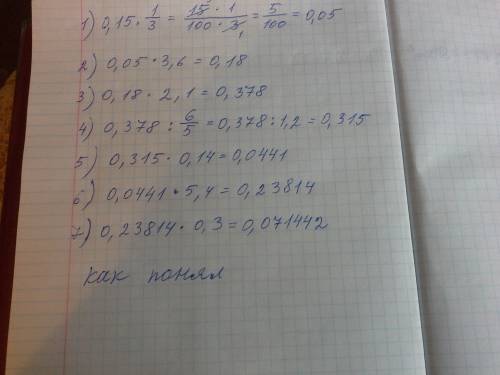 1) 0,15 · 1/3 = 15 · 1/100 · 3, = 5/100 = 0,05
2) 0,05 · 3,6 = 0,18
3) 0,18 · 2,1 = 0,378
4) 0,378 : 6/5 = 0,378 : 1,2 = 0,315
5) 0,315 · 0,14 = 0,0441
6) 0,0441 · 5,4 = 0,23814
7) 0,23814 · 0,3 = 0,071442
как понял